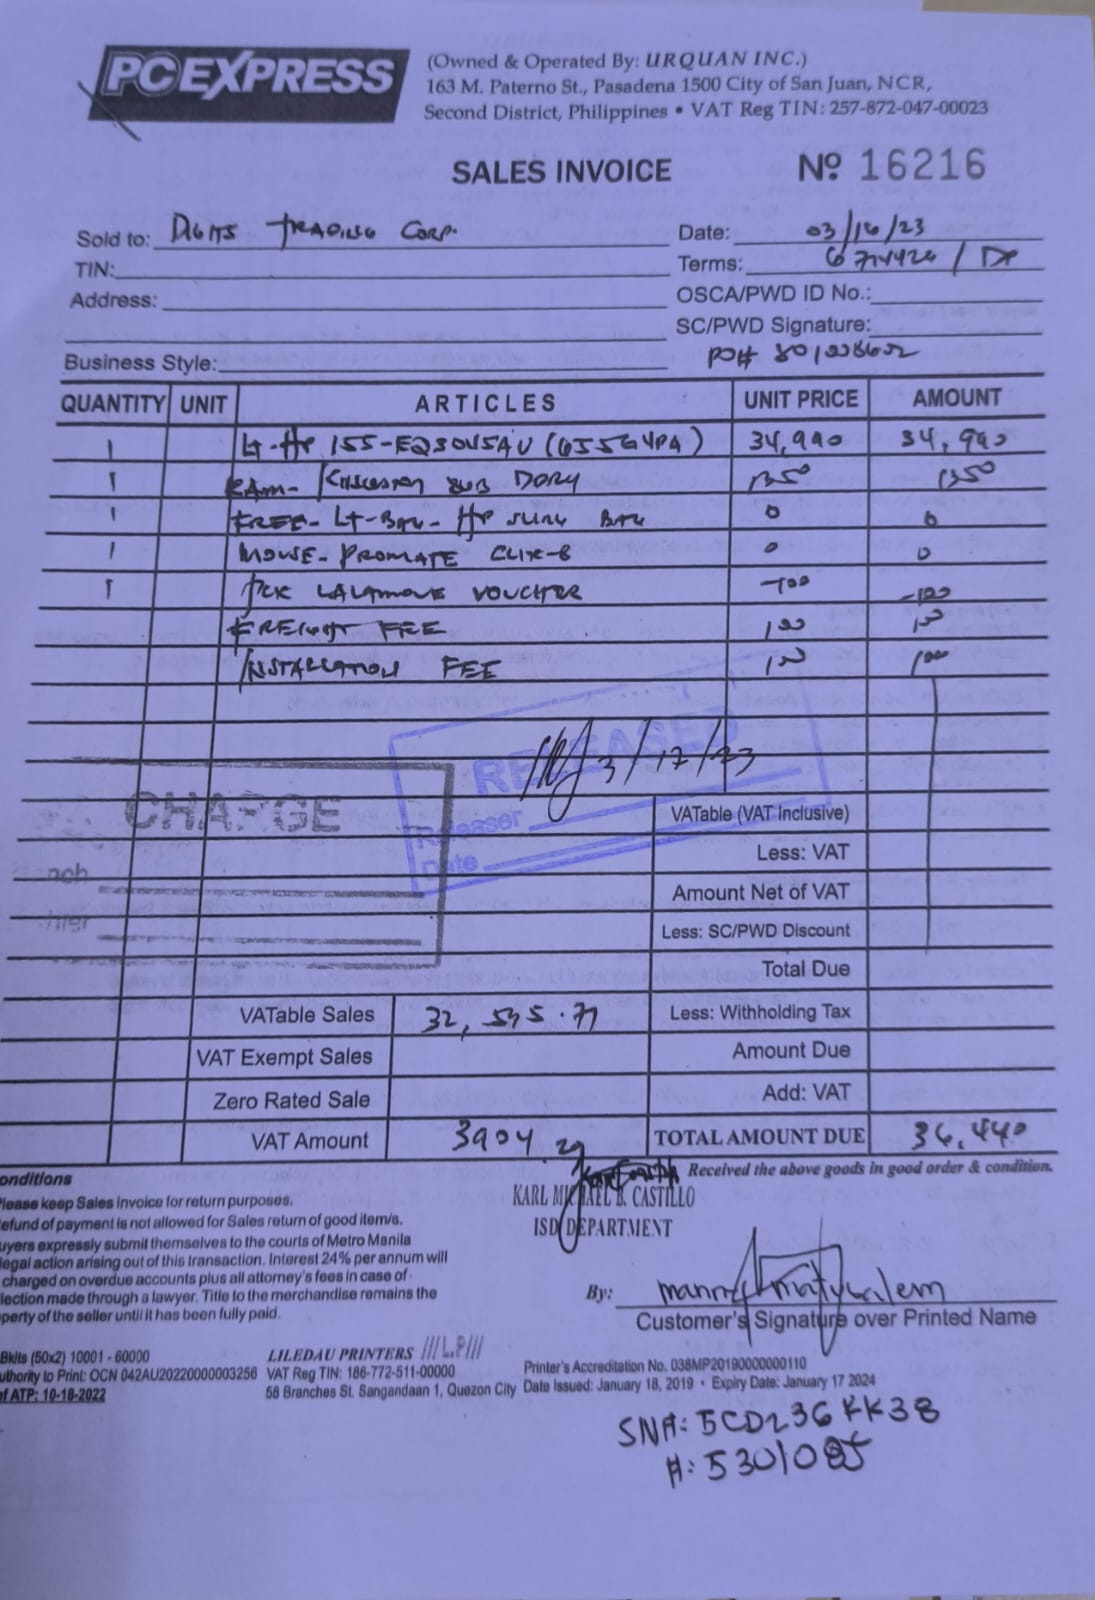 PCEXPRESS
(Owned & Operated By: URQUAN INC.)
163 M. Paterno St., Pasadena 1500 City of San Juan, NCR,
Second District, Philippines • VAT Reg TIN: 257-872-047-00023
SALES INVOICE № 16216
Sold to: DIGITS TRADING CORP. Date: 03/16/23
TIN: Terms: / DP
Address: OSCA/PWD ID No.:
SC/PWD Signature:
Business Style: PO#
QUANTITY UNIT ARTICLES UNIT PRICE AMOUNT
1 LT-HP 15S-EQ3045AU (6S5G4PA) 34,990 34,990
1 RAM- 8GB 1350 1350
1 FREE- LT-BAG- HP BAG 0 0
1 MOUSE- PROMATE CLIX-8 0 0
1 PCX LALAMOVE VOUCHER -100 -100
FREIGHT FEE 100 100
INSTALLATION FEE 100 100
RELEASED
3/17/23
Releaser
Date
CHARGE
VATable (VAT Inclusive)
Less: VAT
Amount Net of VAT
Less: SC/PWD Discount
Total Due
VATable Sales 32, .71 Less: Withholding Tax
VAT Exempt Sales Amount Due
Zero Rated Sale Add: VAT
VAT Amount 3904.29 TOTAL AMOUNT DUE 36,440
onditions
Please keep Sales Invoice for return purposes.
efund of payment is not allowed for Sales return of good item/s.
uyers expressly submit themselves to the courts of Metro Manila
legal action arising out of this transaction. Interest 24% per annum will
charged on overdue accounts plus all attorney's fees in case of
llection made through a lawyer. Title to the merchandise remains the
perty of the seller until it has been fully paid.
Received the above goods in good order & condition.
KARL MICHAEL B. CASTILLO
ISD DEPARTMENT
By:
Customer's Signature over Printed Name
Bklts (50x2) 10001 - 60000
uthority to Print: OCN 042AU20220000003256
of ATP: 10-18-2022
LILEDAU PRINTERS
VAT Reg TIN: 186-772-511-00000
58 Branches St. Sangandaan 1, Quezon City
Printer's Accreditation No. 038MP20190000000110
Date Issued: January 18, 2019 • Expiry Date: January 17 2024
SN#: 5CD236KK3B
#: 5301085